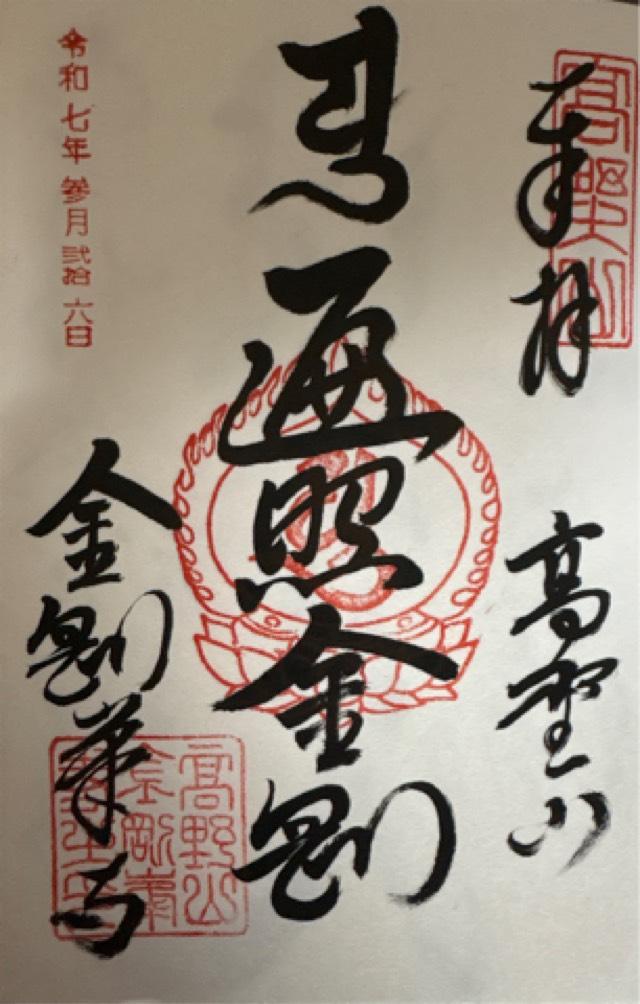 高野山
奉拝
高野山
遍照金剛
令和七年参月弐拾六日
金剛峯寺
高野山
金剛峯